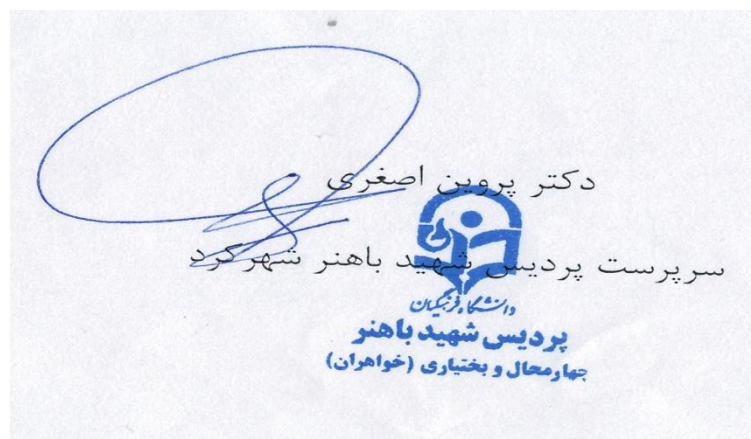 دکتر پروین اصغری
سرپرست پردیس شهید باهنر شهرکرد
دانشگاه فرهنگیان
پردیس شهید باهنر
چهارمحال و بختیاری (خواهران)